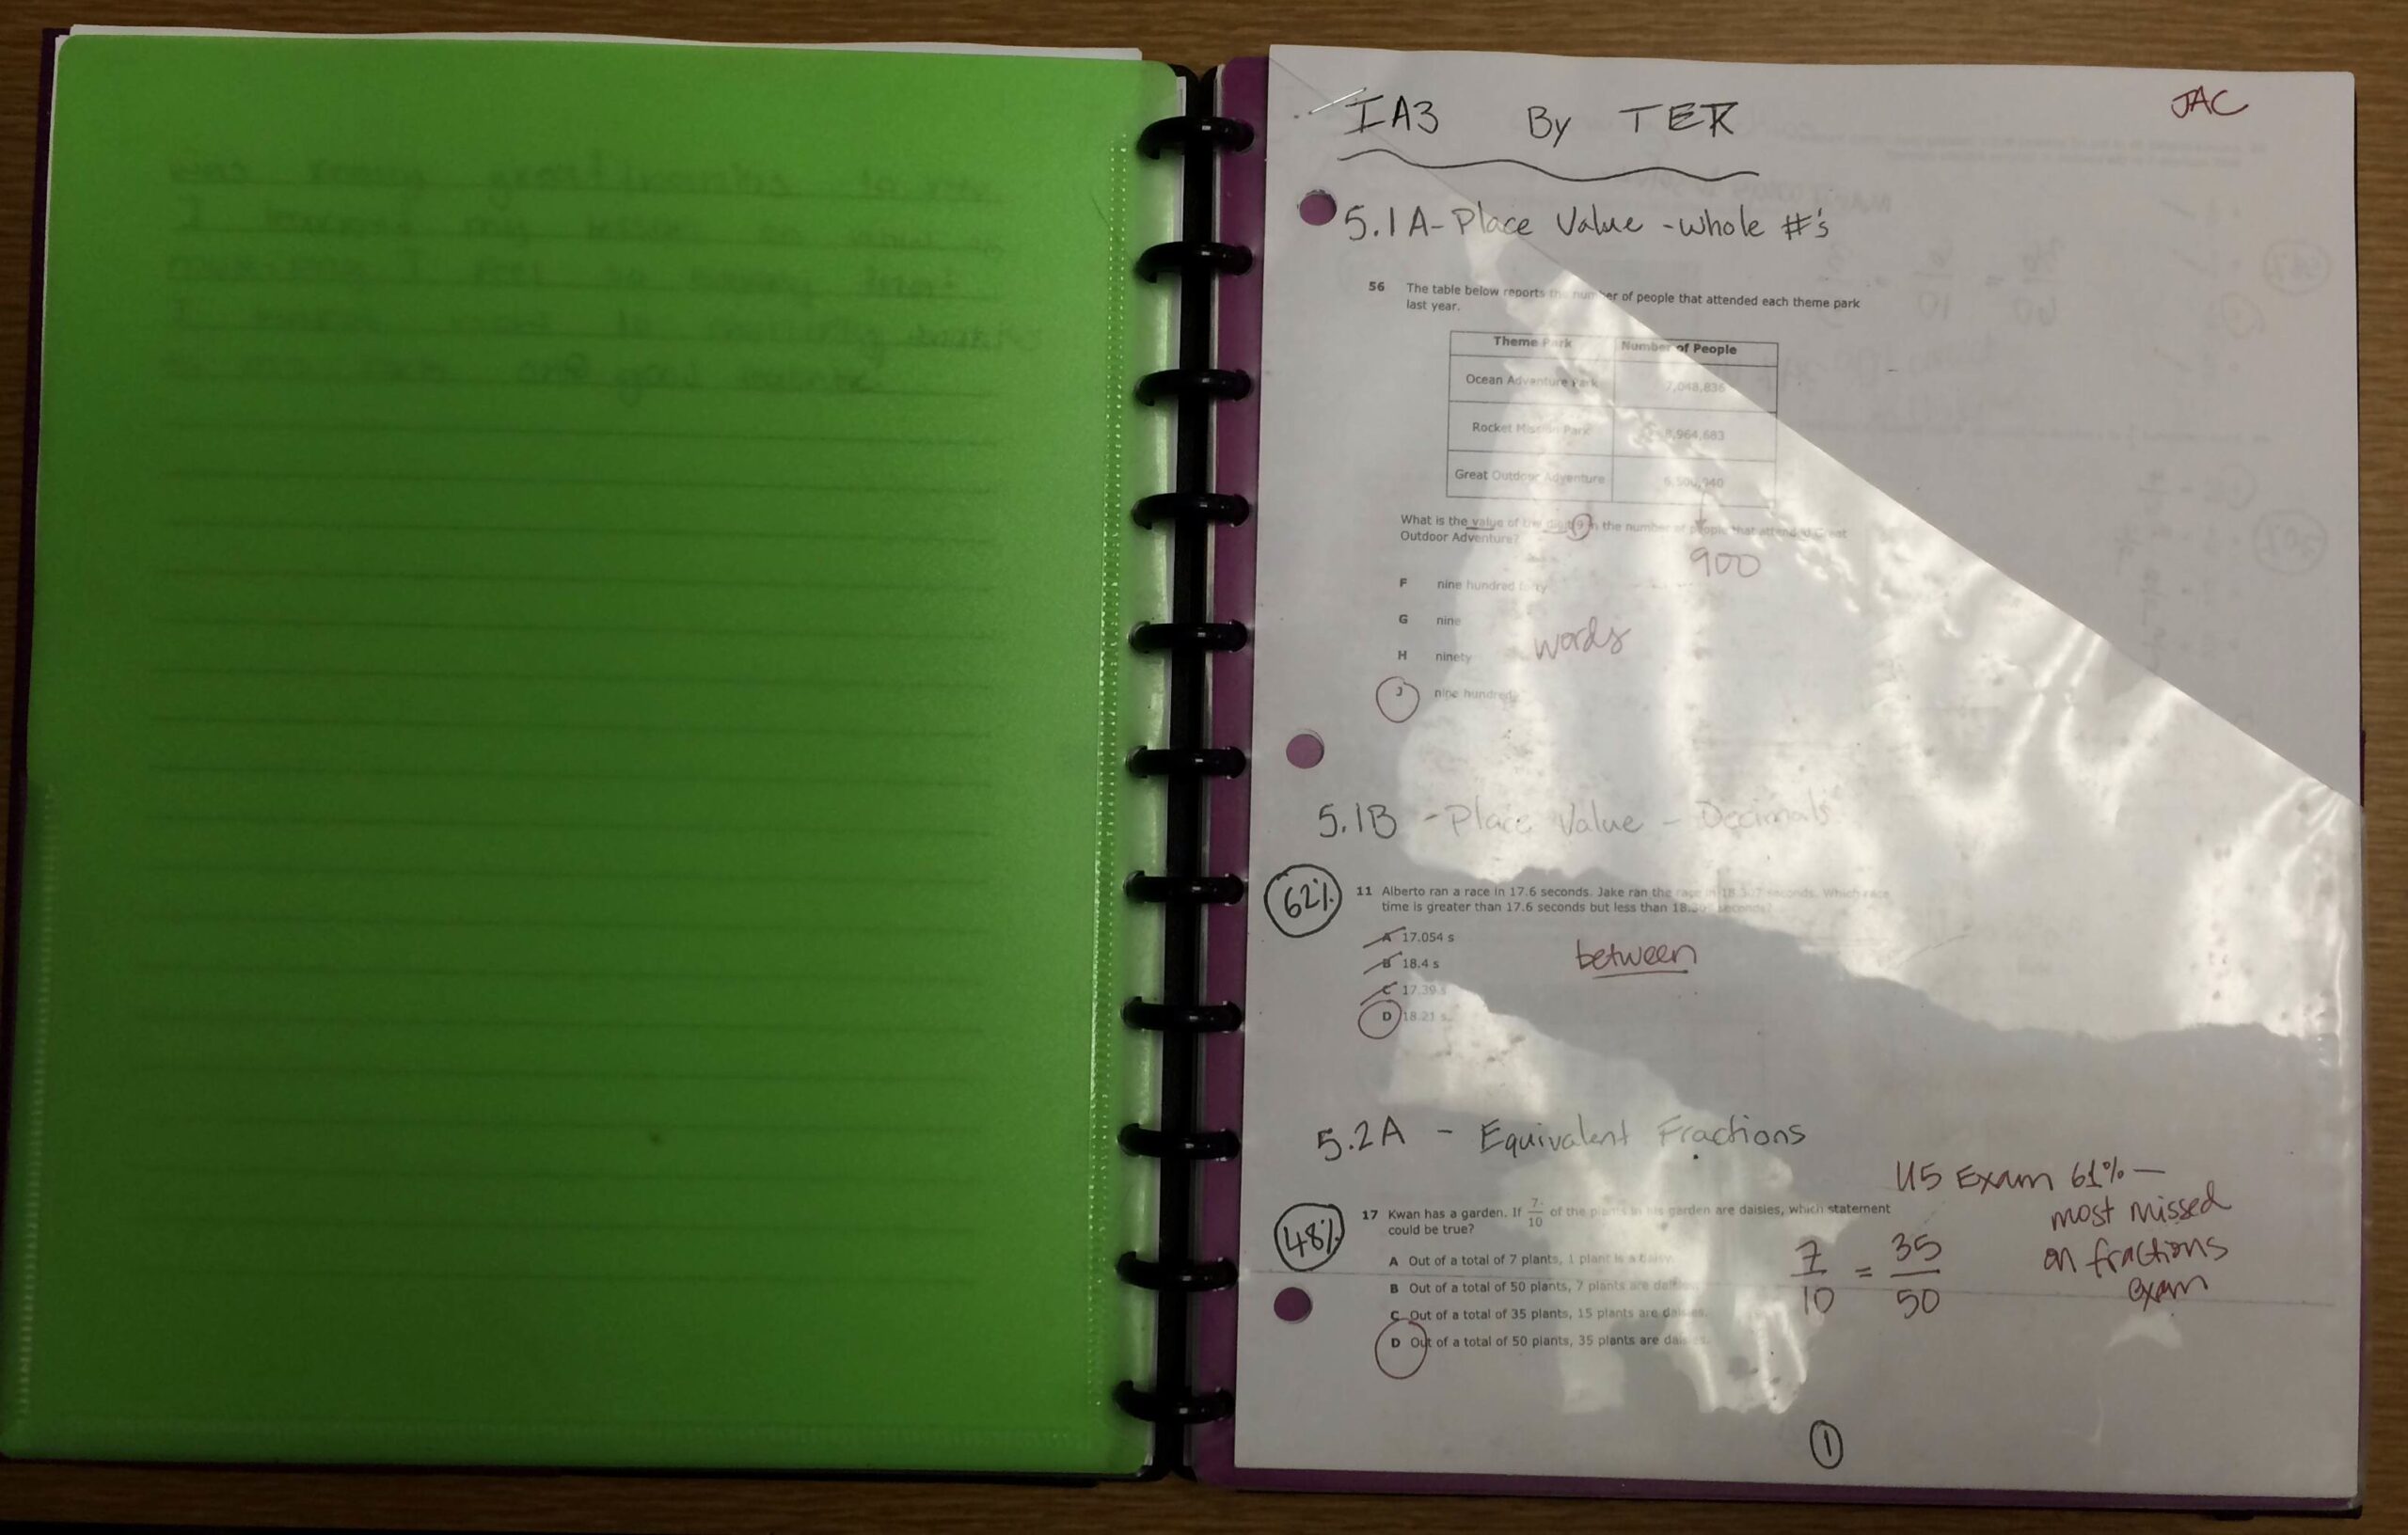 JAC
IA3 By TEK
5.1A-Place Value -whole #'s
56 The table below reports the number of people that attended each theme park
last year.
Theme Park Number of People
Ocean Adventure Park 7,048,836
Rocket Mission Park 8,964,683
Great Outdoor Adventure 6,500,940
What is the value of the digit 9 in the number of people that attended Great
Outdoor Adventure?
900
F nine hundred forty
G nine
words
H ninety
J nine hundred
5.1B - Place Value - Decimals
62%
11 Alberto ran a race in 17.6 seconds. Jake ran the race in 18.307 seconds. Which race
time is greater than 17.6 seconds but less than 18.307 seconds?
A 17.054 s
between
B 18.4 s
C 17.39 s
D 18.21 s
5.2A - Equivalent Fractions
U5 Exam 61% -
most missed
on fractions
exam
48%
17 Kwan has a garden. If 7/10 of the plants in his garden are daisies, which statement
could be true?
7/10 = 35/50
A Out of a total of 7 plants, 1 plant is a daisy.
B Out of a total of 50 plants, 7 plants are daisies.
C Out of a total of 35 plants, 15 plants are daisies.
D Out of a total of 50 plants, 35 plants are daisies.
1